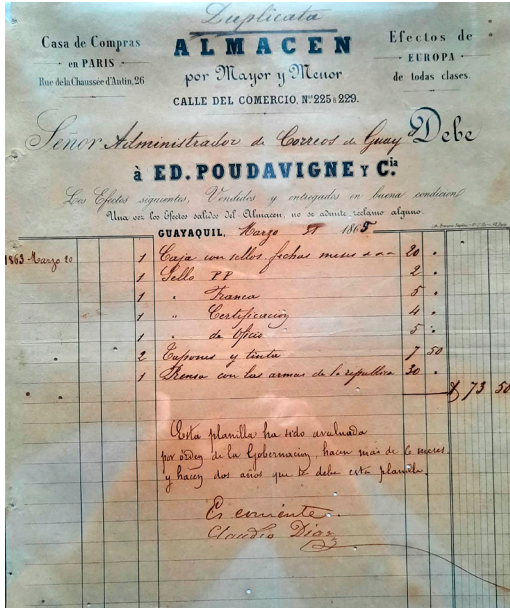 Duplicata
Casa de Compras
en PARIS
Rue de la Chaussée d'Antin, 26
ALMACEN
por Mayor y Menor
CALLE DEL COMERCIO, Nos 225 à 229.
Efectos de
EUROPA
de todas clases.
Señor Administrador de Correos de Guayql Debe
à ED. POUDAVIGNE Y Cia
Los Efectos siguientes, Vendidos y entregados en buena condicion
Una vez los Efectos salidos del Almacen, no se admite reclamo alguno.
GUAYAQUIL, Marzo 21 1865
1863 Marzo 20 1 Caja con sellos, fechas meses 20 "
1 Sello PP 2 "
1 " Franca 5 "
1 " Certificacion 4 "
1 " de oficio 5 "
2 Tapones y tinta 7 50
1 Prensa con las armas de la republica 30 "
$ 73 50
Esta planilla ha sido avaluada
por órden de la Gobernacion, hacen más de 6 meses
y hacen dos años que se debe esta planilla.
Es corriente.
Claudio Diaz